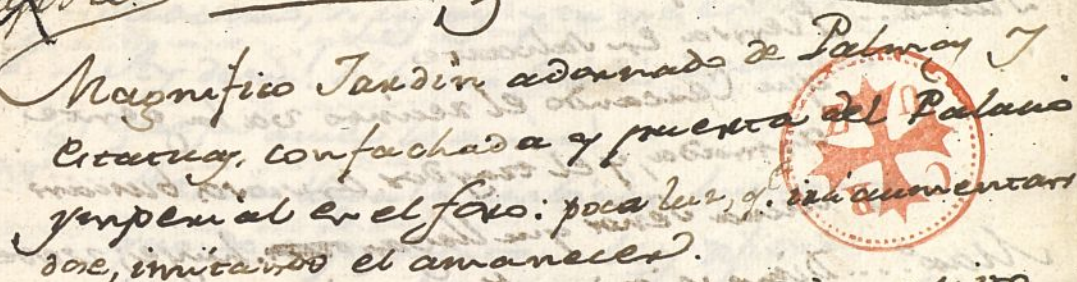 Magnifico Jardin adornado de Palmas y
estatuas, con fachada y puerta del Palacio
ymperial en el foro: poca luz, q.e irá aumentan
dose, imitando el amanecer.